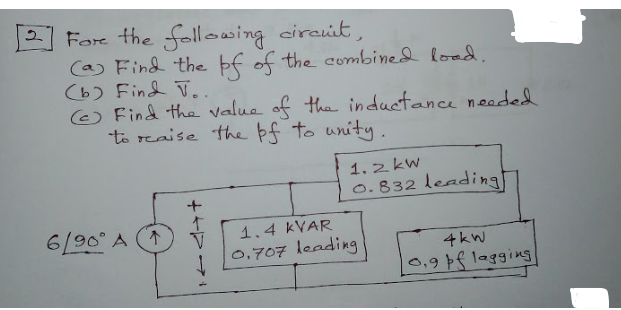 2 For the following circuit,
(a) Find the pf of the combined load.
(b) Find V̄o.
(c) Find the value of the inductance needed
to raise the pf to unity.
1.2 kW
0.832 leading
+
6/90° A
V
1.4 kVAR
0.707 leading
4kW
0,9 pf lagging
-